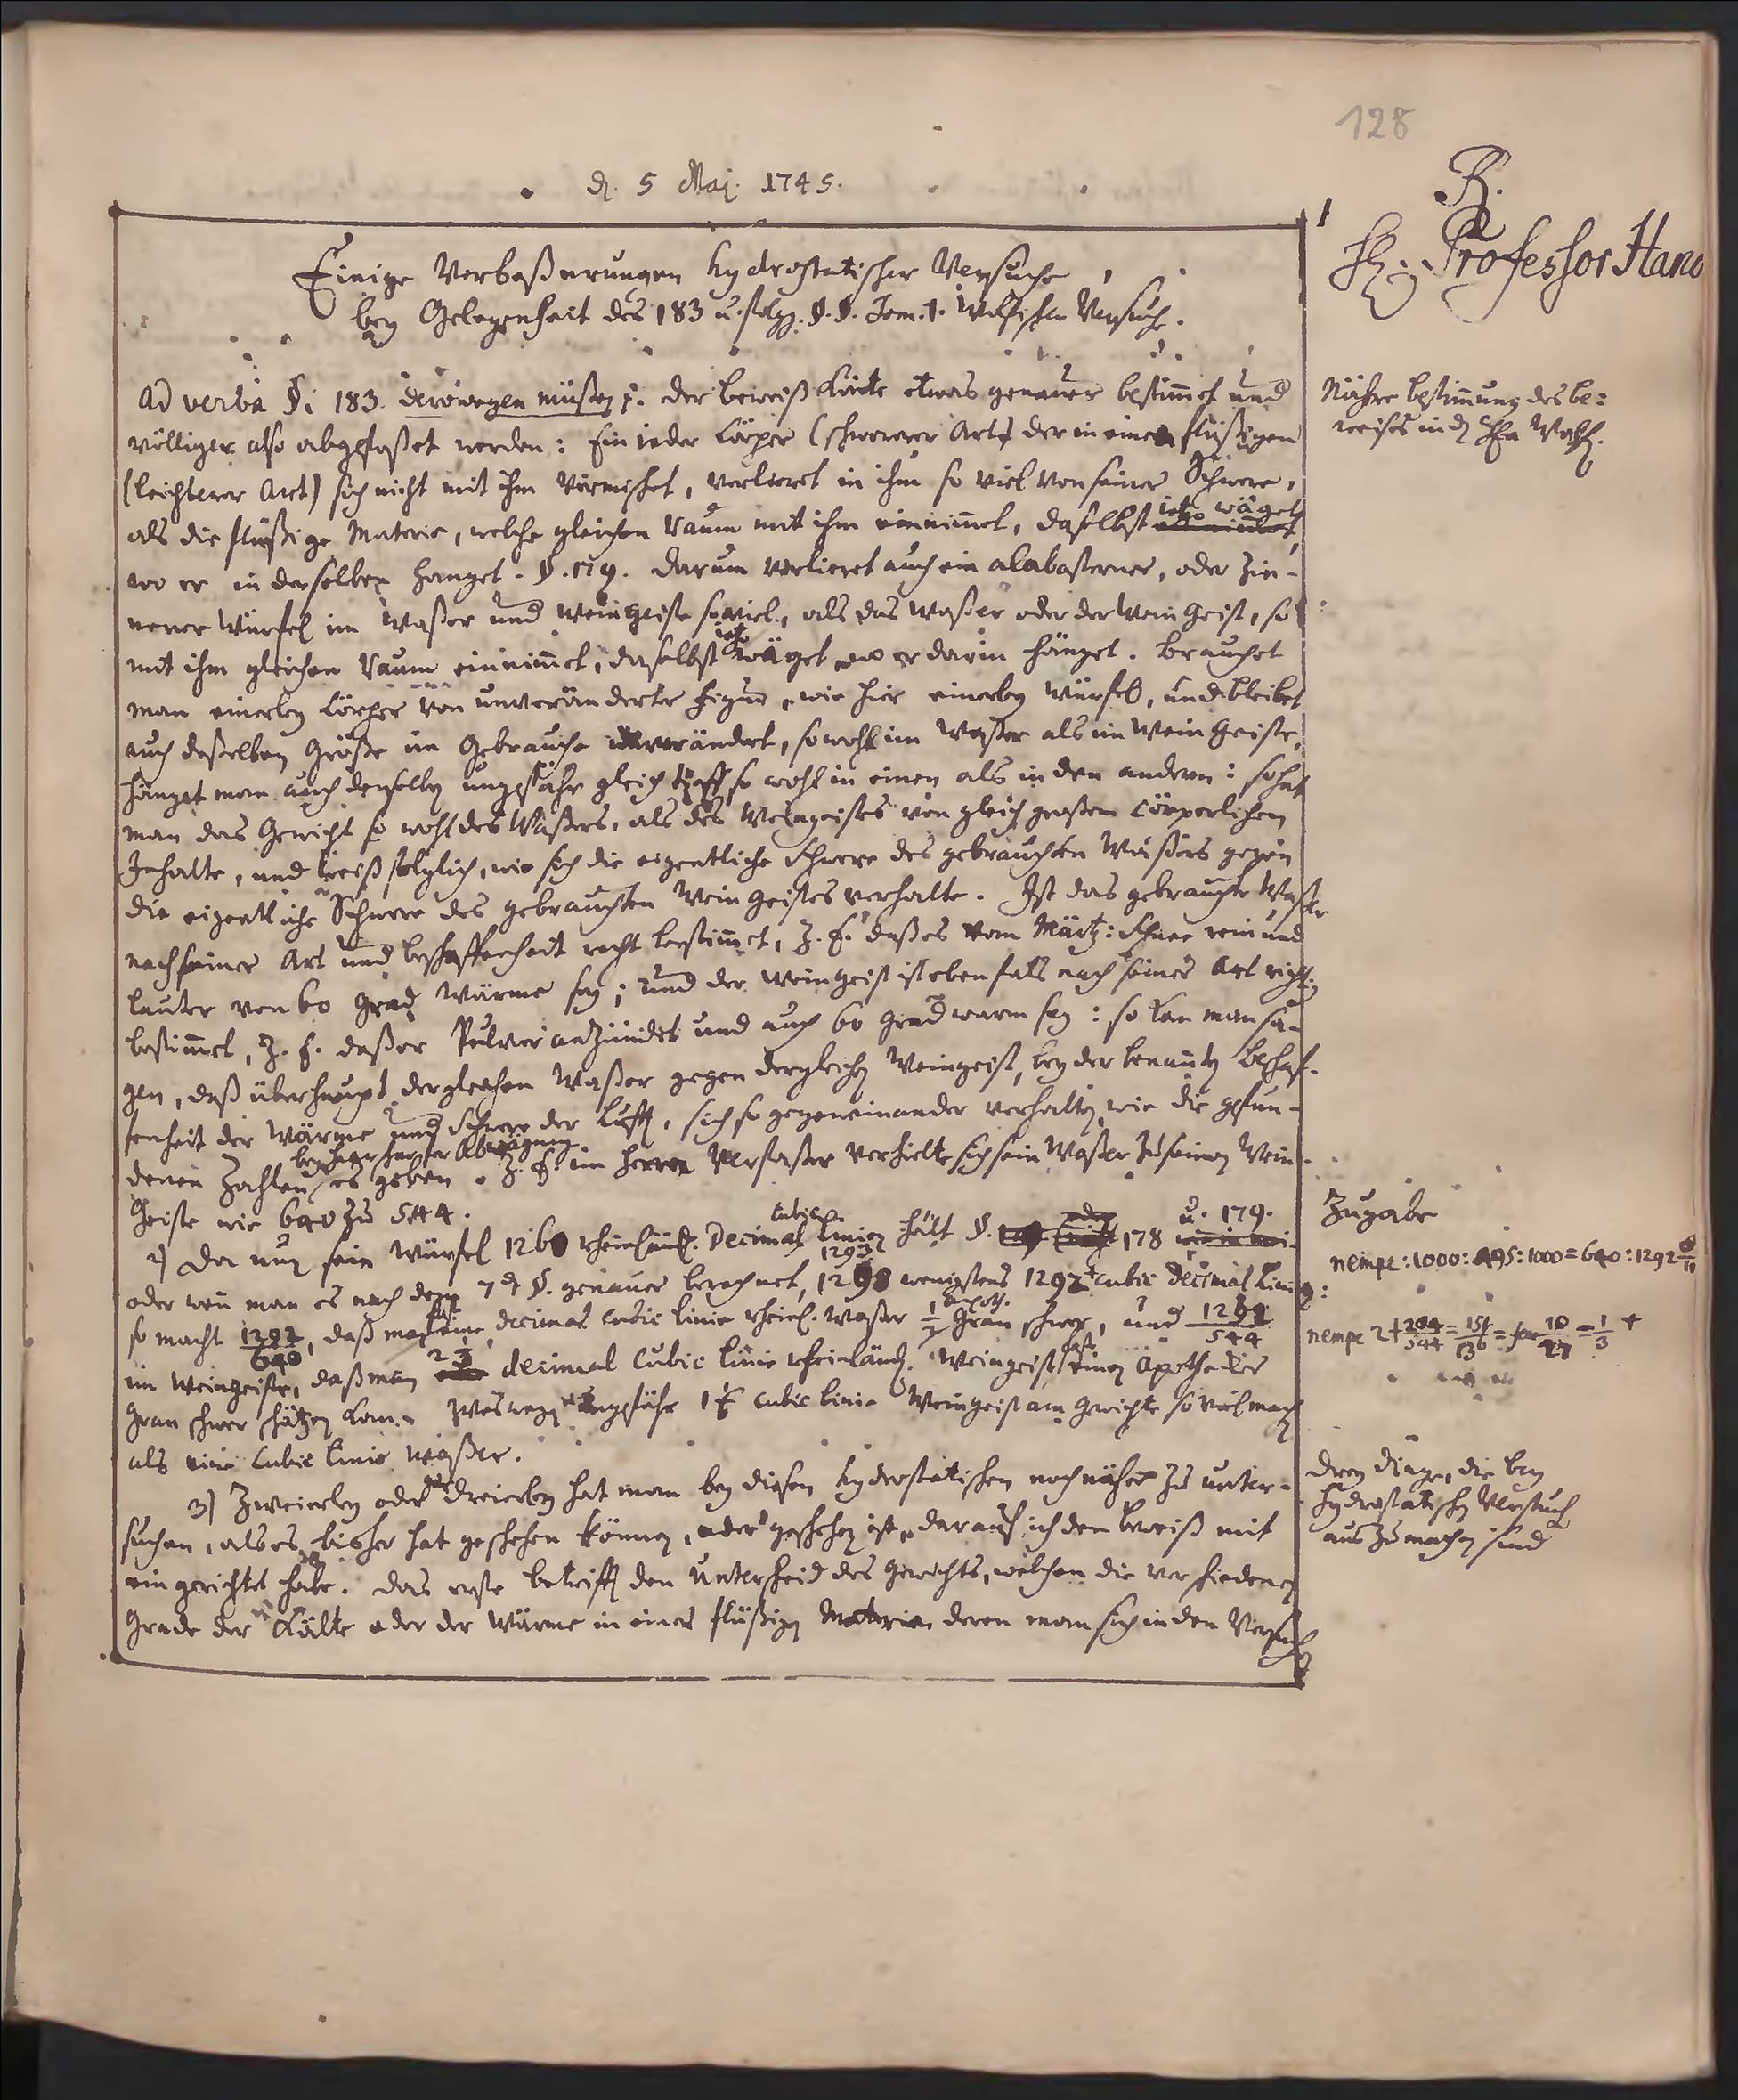 128
d. 5 Maj. 1745.
R.
H. Professor Hano
Einige Verbeßerungen hydrostatischer Versuche,
bey Gelegenheit des 183 u. folg. §.§. Tom. 1. Wolfischer Versuche.
Ad verba §i 183. derowegen müßen pp. der beweiß könte etwas genauer bestimmet und
völliger also abgefaßet werden: Ein ieder Cörper (schwerer Art) der in einem flüßigen
(leichterer Art) sich nicht mit ihm vermischet, verlieret in ihm so viel von seiner Schwere,
als die flüßige Materie, welche gleichen Raum mit ihm einnimmet, daselbst wäget,
wo er in derselben hanget. §. 179. Darum verlieret auch ein alabasterner, oder Zin-
nerner Würfel im Waßer und Weingeiste soviel, als das Waßer oder der Weingeist, so
mit ihm gleichen Raum einnimmet, daselbst wäget, wo er darin hänget. Brauchet
man einerley Cörper von unveränderter Figur, wie hier einerley Würfel, und bleibet
auch deßelben Größe im Gebrauche unverändert, sowohl im Waßer als im Weingeiste,
hänget man auch denselben ungefähr gleich tieff so wohl in einen als in den andern: so hat
man das Gewicht so wohl des Waßers, als des Weingeistes von gleich großem Cörperlichen
Inhalte, und weiß folglich, wie sich die eigentliche Schwere des gebrauchten Waßers gegen
die eigentliche Schwere des gebrauchten Weingeistes verhalte. Ist das gebrauchte Waßer
nach seiner Art und beschaffenheit recht bestimmet, Z. E. daß es vom Märtz: Schnee rein und
lauter von 60 Grad Wärme sey; und der Weingeist ist ebenfals nach seiner Art richtig
bestimmet, Z. E. daß er Pulver anzündet und auch 60 Grad warm sey: so kan man sa-
gen, daß überhaupt dergleichen Waßer gegen dergleichen Weingeist, bey der benannten Beschaf-
fenheit der Wärme und Schwere der Lufft, sich so gegeneinander verhalten, wie die gefun-
denen Zahlen es geben. Z. E. im Herrn Verfaßer verhielte sich sein Waßer zu seinem Wein-
Geiste wie 640 zu 544.
2) Da nun sein Würfel 1260 rheinländ. Decimal Cubic Linien hält §. 178 u. 179.
oder wenn man es nach dem 7d §. genauer berechnet, 1293 wenigstens 1292 cubic decimal Linien:
so macht 1292/640, daß man eine decimal cubic linie rheinl. Waßer 1/2 Apoth. Gran schwer, und 1292/544
im Weingeiste, daß man 2 1/3 decimal Cubic linie rheinländ. Weingeist fast einen Apothecker
Gran schwer schätzen kan. Weswegen ungefähr 1 1/6 cubic linie Weingeist am Gewichte so viel macht
als eine Cubic linie Waßer.
3) Zweierley oder Dreierley hat man bey diesen hydrostatischen noch näher zu unter-
suchen, als es bisher hat geschehen können, oder geschehen ist, darauf ich den beweiß mit
eingerichtet habe. Das erste betrifft den Unterscheid des Gewichts, welchen die verschiedenen
Grade der Kälte oder der Wärme in einer flüßigen Materie, deren man sich in den Versuchen
Nähre bestimmung des be:
weises in H. Wolf.
Zugabe
nempe: 1000: 495: 1000 = 640: 1292
nempe 2 + 204/544 = 151/136 = fere 10/27 = 1/3 +
Drey Dinge, die bey
hydrostatischen Versuch
auszumachen sind